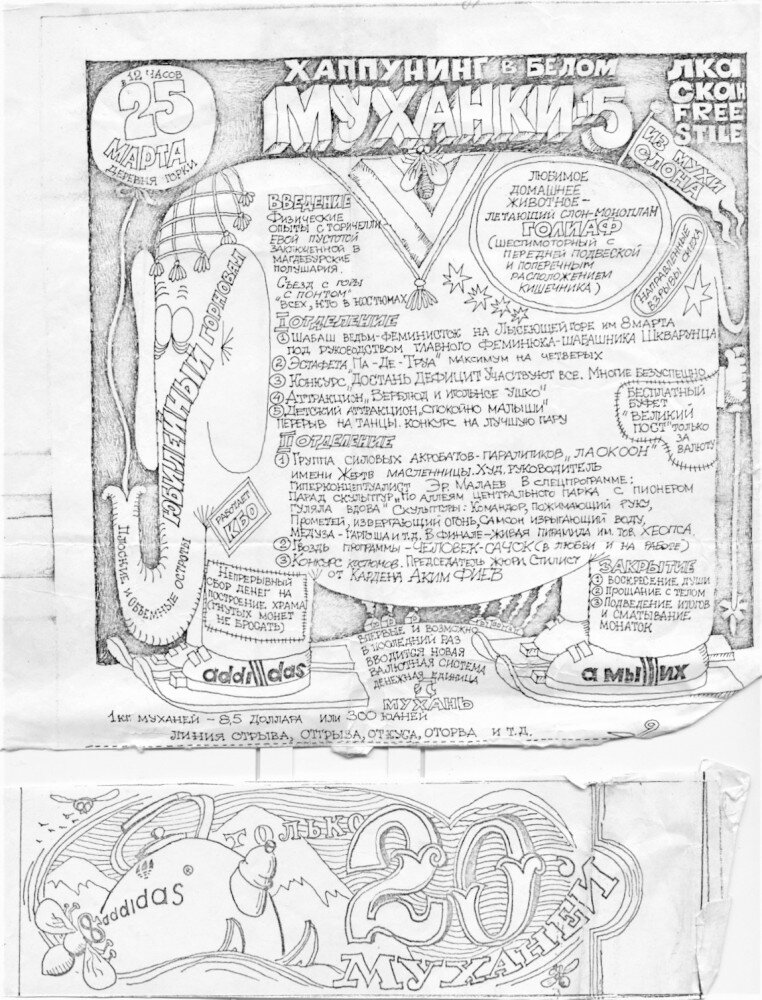 В 12 ЧАСОВ
25
МАРТА
ДЕРЕВНЯ ГОРКИ
ХАППУНИНГ в БЕЛОМ
МУХАНКИ-5
ЛКА
СКАН
FREE
STILE
ИЗ МУХИ
СЛОНА
ЛЮБИМОЕ
ДОМАШНЕЕ
ЖИВОТНОЕ –
ЛЕТАЮЩИЙ СЛОН-МОНОПЛАН
ГОЛИАФ
(ШЕСТИМОТОРНЫЙ С
ПЕРЕДНЕЙ ПОДВЕСКОЙ
И ПОПЕРЕЧНЫМ
РАСПОЛОЖЕНИЕМ
КИШЕЧНИКА)
НАПРАВЛЕННЫЕ
ВЗРЫВЫ СМЕХА
ВВЕДЕНИЕ
ФИЗИЧЕСКИЕ
ОПЫТЫ С ТОРИЧЕЛЛИ-
ЕВОЙ ПУСТОТОЙ
ЗАКЛЮЧЕННОЙ В
МАГДЕБУРСКИЕ
ПОЛУШАРИЯ.
СЪЕЗД С ГОРЫ
"С ПОНТОМ"
ВСЕХ, КТО В КОСТЮМАХ
ЮБИЛЕЙНЫЙ
I ОТДЕЛЕНИЕ
① ШАБАШ ВЕДЬМ-ФЕМИНИСТОК НА ЛЫСЕЮЩЕЙ ГОРЕ ИМ 8 МАРТА
ПОД РУКОВОДСТВОМ ГЛАВНОГО ФЕМИНЮКА-ШАБАШНИКА ШКВАРУНЦА
② ЭСТАФЕТА „ПА-ДЕ-ТРУА" МАКСИМУМ НА ЧЕТВЕРЫХ
③ КОНКУРС „ДОСТАНЬ ДЕФИЦИТ УЧАСТВУЮТ ВСЕ. МНОГИЕ БЕЗУСПЕШНО
④ АТТРАКЦИОН „ВЕРБЛЮД И ИГОЛЬНОЕ УШКО"
⑤ ДЕТСКИЙ АТТРАКЦИОН „СПОКОЙНО МАЛЫШИ"
ПЕРЕРЫВ НА ТАНЦЫ. КОНКУРС НА ЛУЧШУЮ ПАРУ
БЕСПЛАТНЫЙ
БУФЕТ
"ВЕЛИКИЙ
ПОСТ" ТОЛЬКО
ЗА
ВАЛЮТУ
II ОТДЕЛЕНИЕ
① ГРУППА СИЛОВЫХ АКРОБАТОВ-ПАРАЛИТИКОВ „ЛАОКООН"
ИМЕНИ ЖЕРТВ МАСЛЕННИЦЫ. ХУД. РУКОВОДИТЕЛЬ
ГИПЕРКОНЦЕПТУАЛИСТ ЭР. МАЛАЕВ В СПЕЦПРОГРАММЕ:
ПАРАД СКУЛЬПТУР „ПО АЛЛЕЯМ ЦЕНТРАЛЬНОГО ПАРКА С ПИОНЕРОМ
ГУЛЯЛА ВДОВА" СКУЛЬПТУРЫ: КОМАНДОР, ПОЖИМАЮЩИЙ РУКУ,
ПРОМЕТЕЙ, ИЗВЕРГАЮЩИЙ ОГОНЬ, САМСОН ИЗРЫГАЮЩИЙ ВОДУ,
МЕДУЗА-ГАРГОША И Т.Д. В ФИНАЛЕ – ЖИВАЯ ПИРАМИДА ИМ. ТОВ. ХЕОПСА.
② ГВОЗДЬ ПРОГРАММЫ – ЧЕЛОВЕК-САЧОК (В ЛЮБВИ И НА РАБОТЕ)
③ КОНКУРС КОСТЮМОВ. ПРЕДСЕДАТЕЛЬ ЖЮРИ СТИЛИСТ
ОТ КАРДЕНА АКИМ ФИЕВ
РАБОТАЕТ
КВО
ПЛОСКИЕ И ОБЪЕМНЫЕ ОСТРОТЫ
НЕПРЕРЫВНЫЙ
СБОР ДЕНЕГ НА
ПОСТРОЕНИЕ ХРАМА
(ГНУТЫХ МОНЕТ
НЕ БРОСАТЬ)
ЗАКРЫТИЕ
① ВОСКРЕСЕНИЕ ДУШИ
② ПРОЩАНИЕ С ТЕЛОМ
③ ПОДВЕДЕНИЕ ИТОГОВ
И СМАТЫВАНИЕ
МОНАТОК
addidas
а мыших
ВПЕРВЫЕ И ВОЗМОЖНО
В ПОСЛЕДНИЙ РАЗ
ВВОДИТСЯ НОВАЯ
ВАЛЮТНАЯ СИСТЕМА
ДЕНЕЖНАЯ ЕДИНИЦА
МУХАНЬ
1 КГ. МУХАНЕЙ – 8,5 ДОЛЛАРА ИЛИ 300 ЮАНЕЙ
ЛИНИЯ ОТРЫВА, ОТГРЫЗА, ОТКУСА, ОТОРВА И Т.Д.
ТОЛЬКО
20
МУХАНЕЙ
addidas ®
addidas
8